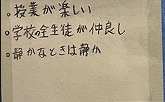 ・授業が楽しい
・学校の全生徒が仲良し
・静かなときは静か